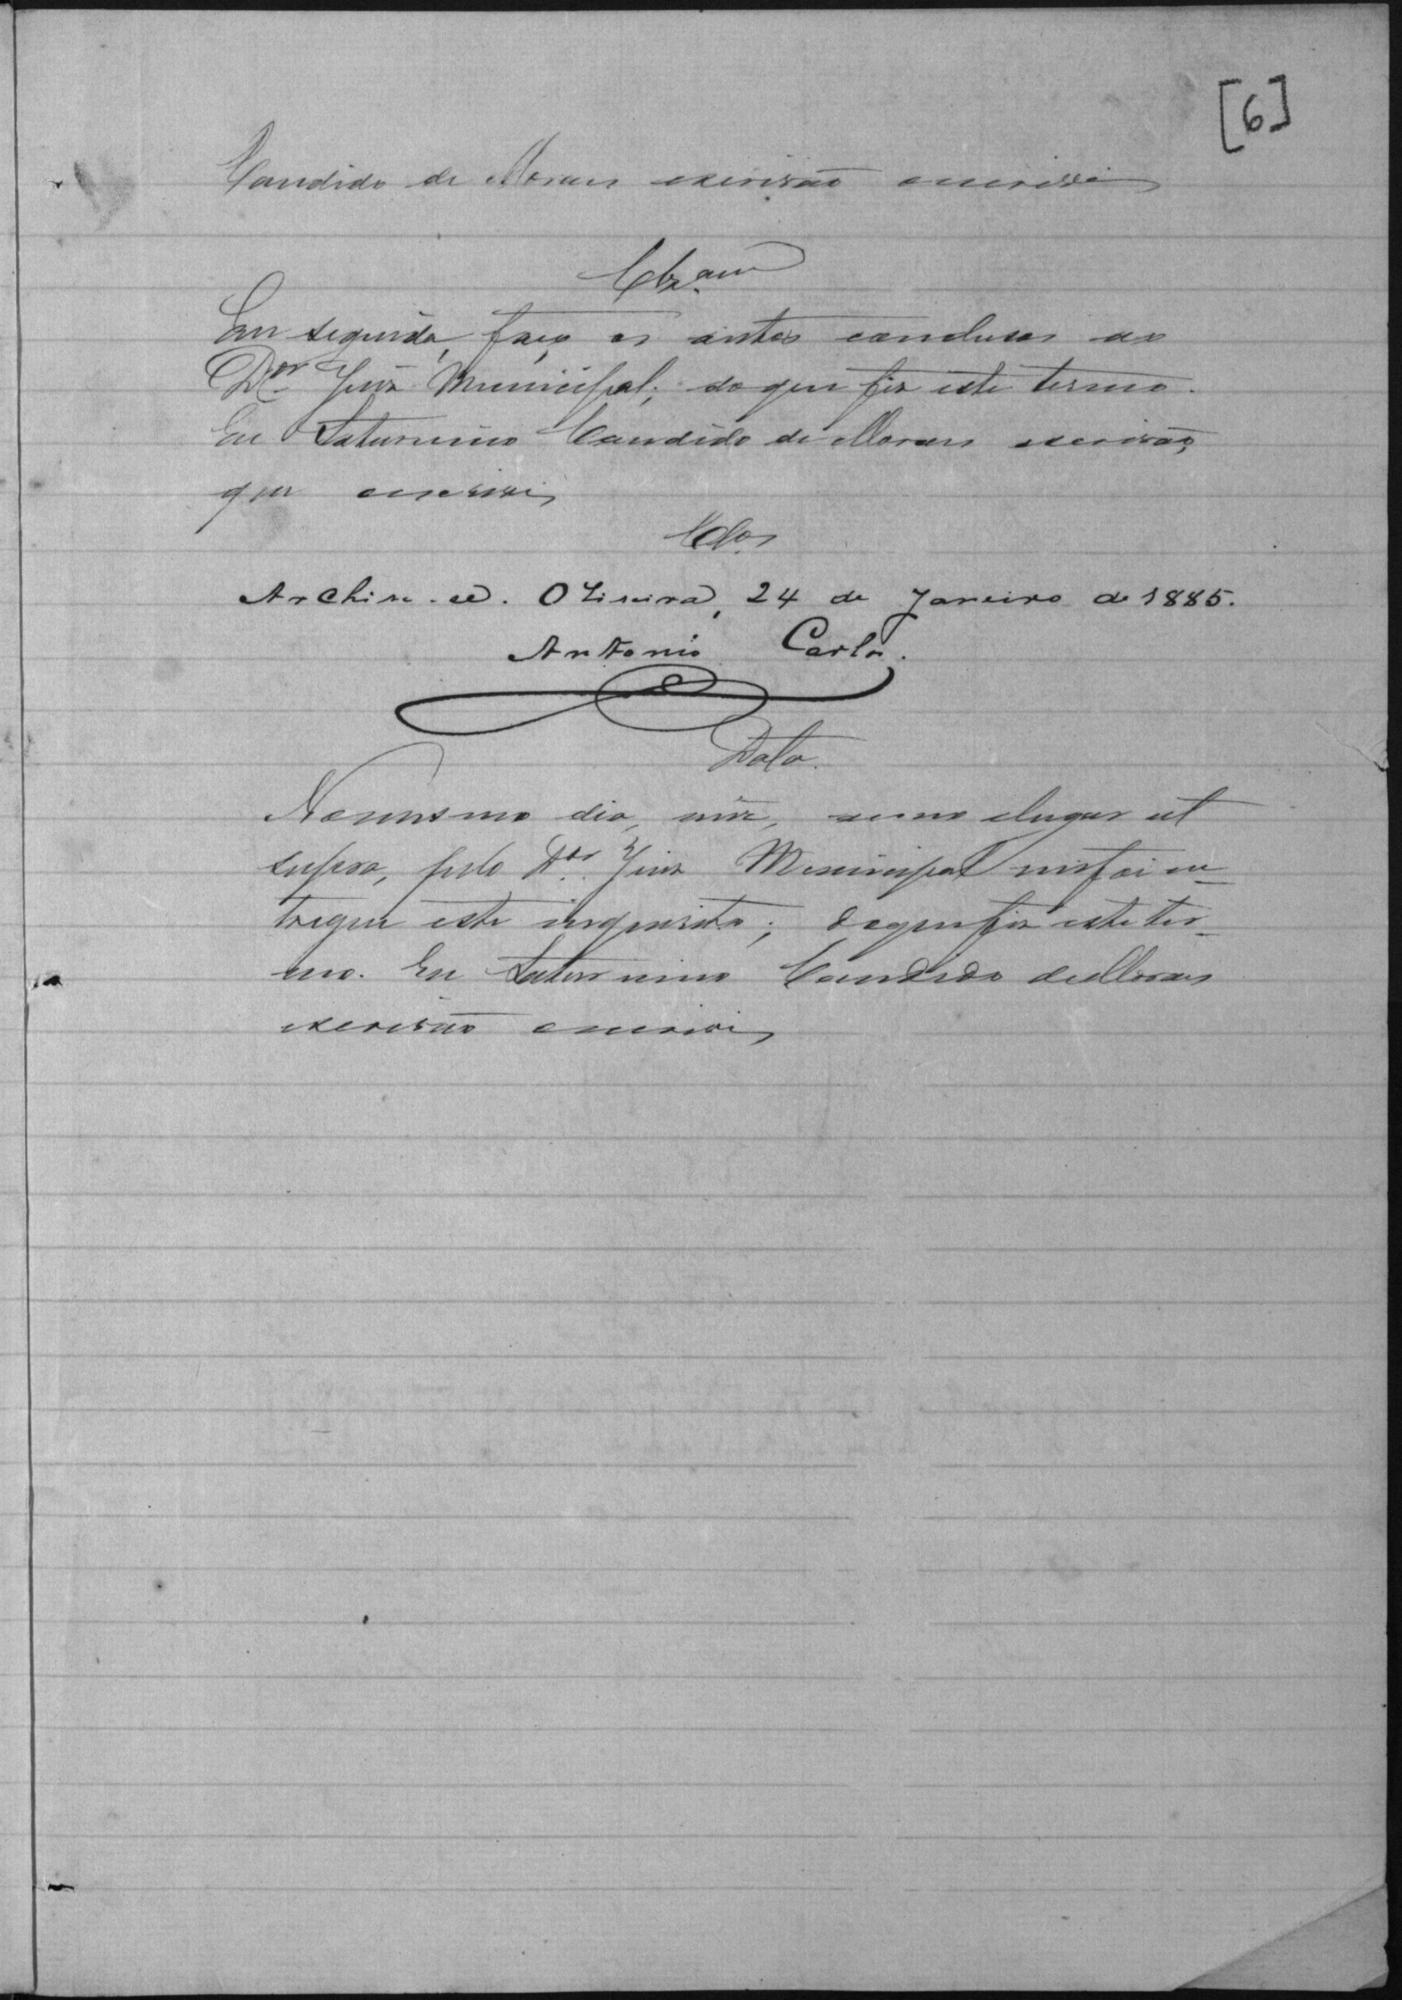 [6]
Candido de Moraes escrivão o escrevi
Clz.am
Em seguida, faço os autos conclusos ao
Dor Juiz Municipal; do que fiz este termo.
Eu Saturnino Candido de Moraes escrivão,
que o escrevi
Clos
Archive-se. Oliveira, 24 de Janeiro de 1885.
Antonio Carlos.
Data.
No mesmo dia, mez, anno e lugar ut
supra, pelo Dor Juiz Municipal me foi en-
tregue este inquerito; do que fiz este ter-
mo. Eu Saturnino Candido de Moraes
escrivão o escrevi